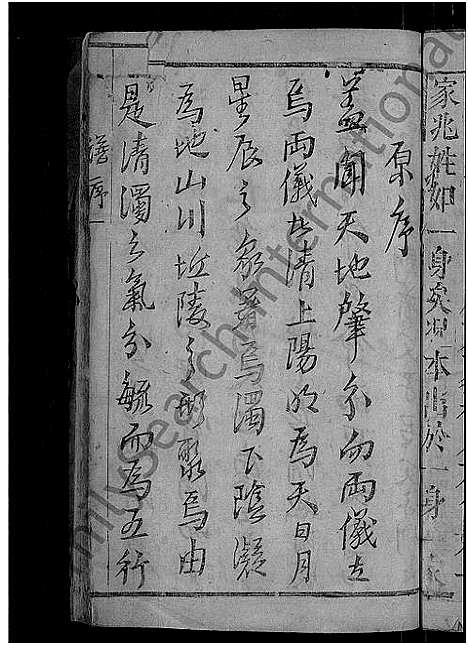 家兆姓如一身矣
本 於一身
原序
蓋聞天地肇分而兩儀立
焉兩儀 清上陽 為天日月
星辰之象 焉濁下陰凝
為地山川丘陵之形聚焉由
是清濁之氣分毓而為五行
譜序 一
familysearch international